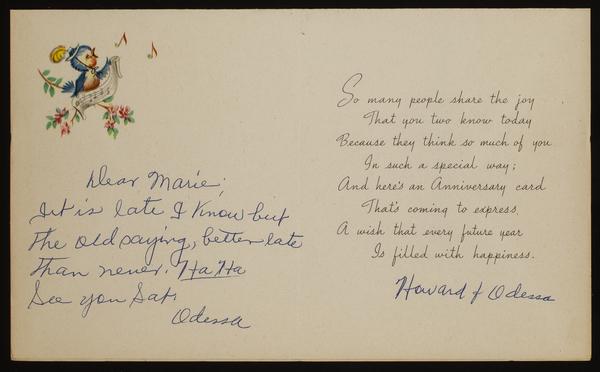 Dear Marie;
It is late I know but
the old saying, better late
than never. Ha Ha
See you Sat.
Odessa
So many people share the joy
That you two know today
Because they think so much of you
In such a special way;
And here's an Anniversary card
That's coming to express
A wish that every future year
Is filled with happiness.
Howard & Odessa